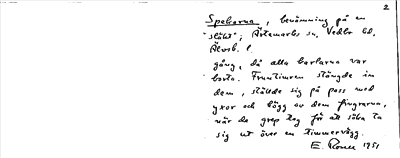 2
Spekarna, benämning på en
släkt; Ärtemarks sn, Vedbo hd,
Älvsb. l.
gång, då alla karlarna var
borta. Fruntimren stängde in
dem, ställde sig på pass med
yxor och högg av dem fingrarna,
när de grep tag för att söka ta
sig ut över en timmervägg.
E. Rosell 1951